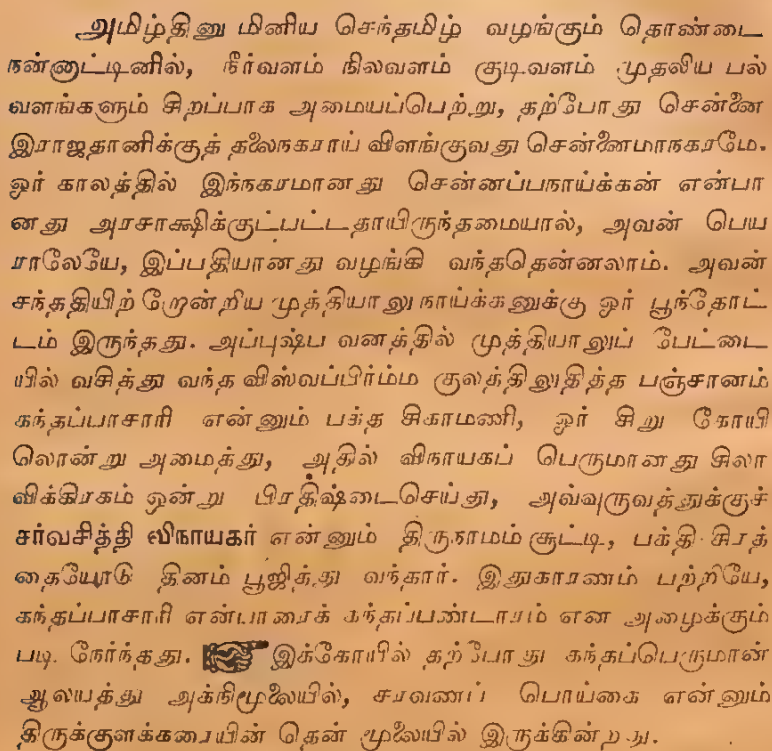 அமிழ்தினு மினிய செந்தமிழ் வழங்கும் தொண்டை
நன்னாட்டினில், நீர்வளம் நிலவளம் குடிவளம் முதலிய பல்
வளங்களும் சிறப்பாக அமையப்பெற்று, தற்போது சென்னை
இராஜதானிக்குத் தலைநகராய் விளங்குவது சென்னைமாநகரமே.
ஓர் காலத்தில் இந்நகரமானது சென்னப்பநாய்க்கன் என்பா
னது அரசாக்ஷிக்குட்பட்டதாயிருந்தமையால், அவன் பெய
ராலேயே, இப்பதியானது வழங்கி வந்ததென்னலாம். அவன்
சந்ததியிற் றோன்றிய முத்தியாலுநாய்க்கனுக்கு ஓர் பூந்தோட்
டம் இருந்தது. அப்புஷ்ப வனத்தில் முத்தியாலுப் பேட்டை
யில் வசித்து வந்த விஸ்வப்பிர்ம்ம குலத்திலுதித்த பஞ்சானம்
கந்தப்பாசாரி என்னும் பக்த சிகாமணி, ஓர் சிறு கோயி
லொன்று அமைத்து, அதில் விநாயகப் பெருமானது சிலா
விக்கிரகம் ஒன்று பிரதிஷ்டைசெய்து, அவ்வுருவத்துக்குச்
சர்வசித்தி விநாயகர் என்னும் திருநாமம் சூட்டி, பக்தி சிரத்
தையோடு தினம் பூஜித்து வந்தார். இதுகாரணம் பற்றியே,
கந்தப்பாசாரி என்பாரைக் கந்தப்பண்டாரம் என அழைக்கும்
படி நேர்ந்தது. ☞ இக்கோயில் தற்போது கந்தப்பெருமான்
ஆலயத்து அக்நிமூலையில், சரவணப் பொய்கை என்னும்
திருக்குளக்கரையின் தென் மூலையில் இருக்கின்றது.